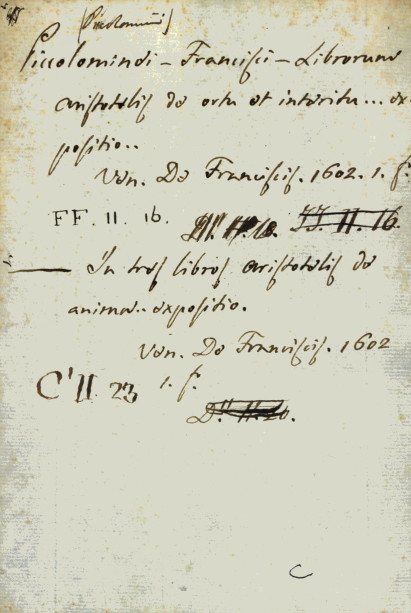 (Piccolomini)
Piccolomindi - Francisci - Librorum
Aristotelis de ortu et interitu... ex-
positio..
Ven. De Franciscis. 1602. 1. f.
FF. II. 16.
JJ. II. 16.
— In tres libros Aristotelis de
anima.. expositio.
Ven. De Franciscis. 1602
1. f.
C'II. 23
D. II. 20.
C